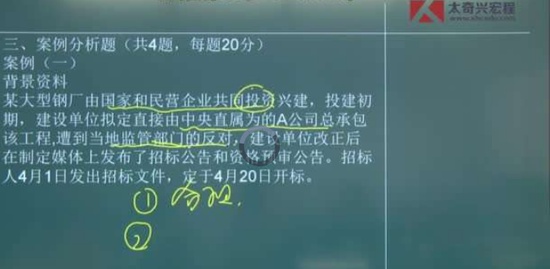 太奇兴宏程
三、案例分析题（共4题，每题20分）
案例（一）
背景资料
某大型钢厂由国家和民营企业共同投资兴建，投建初
期，建设单位拟定直接由中央直属为的A公司总承包
该工程,遭到当地监管部门的反对，建设单位改正后
在制定媒体上发布了招标公告和资格预审公告。招标
人4月1日发出招标文件，定于4月20日开标。
①
②